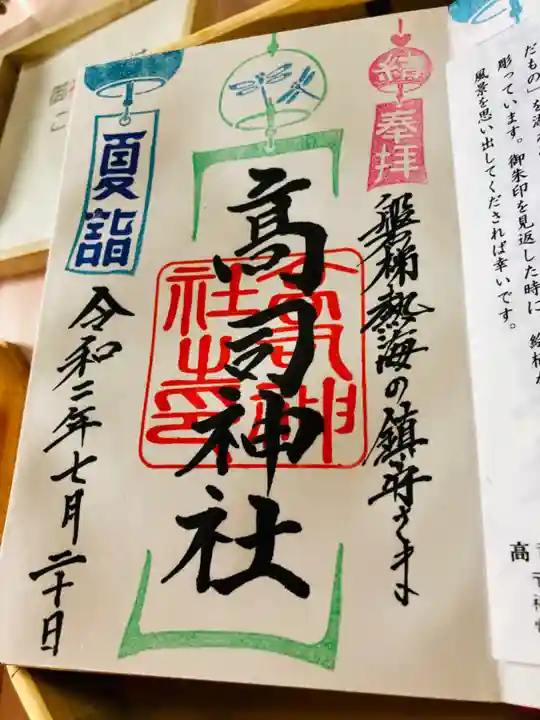 だもの」を
彫っています。御朱印を見返した時に、絵柄か
風景を思い出してくだされば幸いです。
高
結
奉拝
磐梯熱海の鎮守さま
高司神社
夏詣
令和二年七月二十日